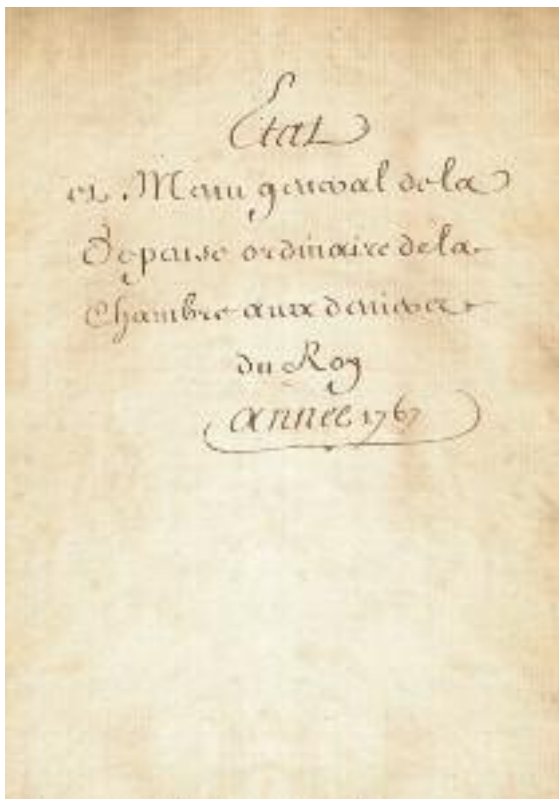 Etat
et Menu general de la
Depense ordinaire de la
Chambre aux deniers
du Roy
année 1767